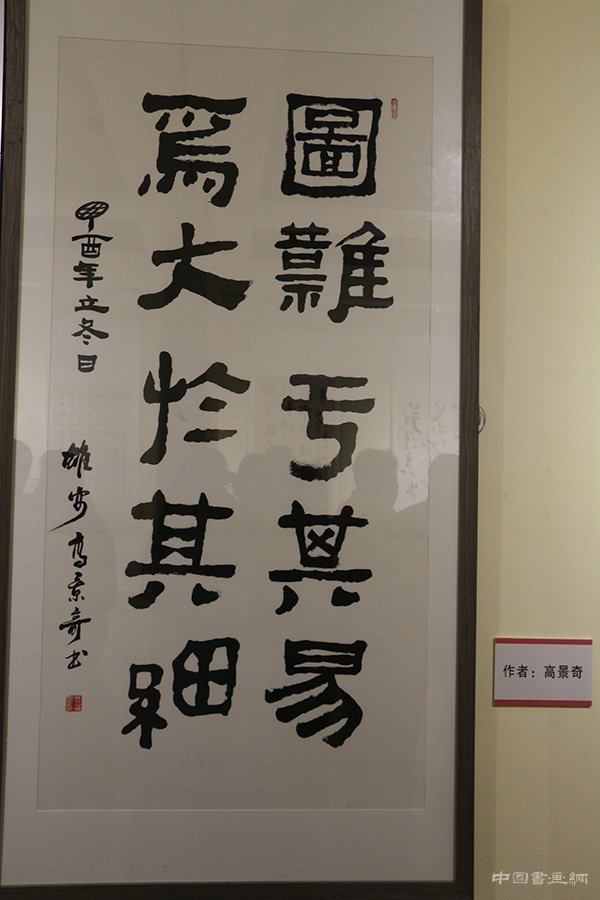 圖難亏其易
爲大於其細
丁酉年立冬日 雄安高景奇书
作者：高景奇
中国書画網